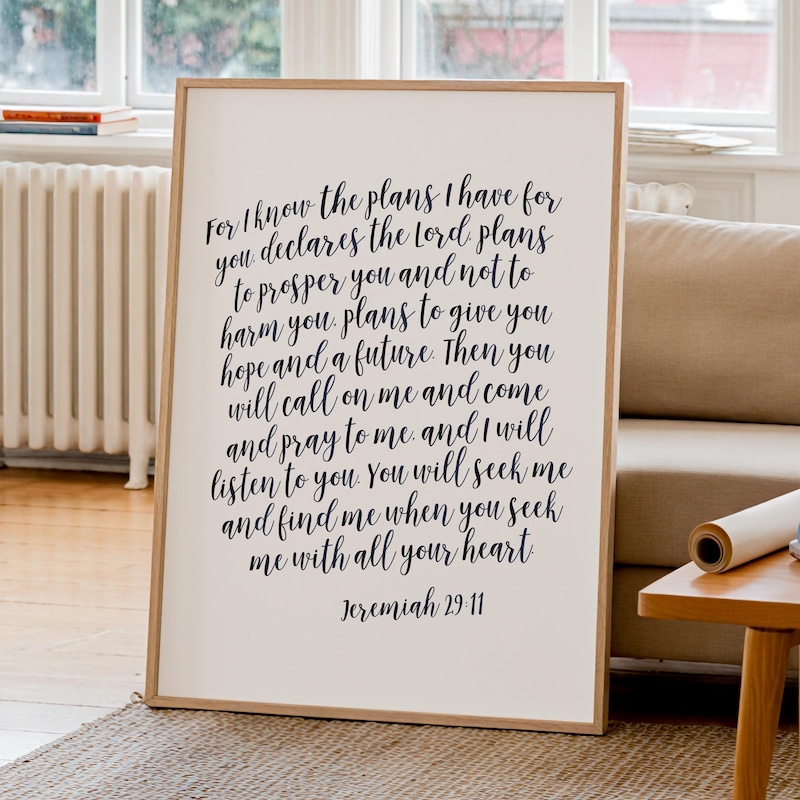 For I know the plans I have for
you, declares the Lord, plans
to prosper you and not to
harm you, plans to give you
hope and a future. Then you
will call on me and come
and pray to me, and I will
listen to you. You will seek me
and find me when you seek
me with all your heart.
Jeremiah 29:11